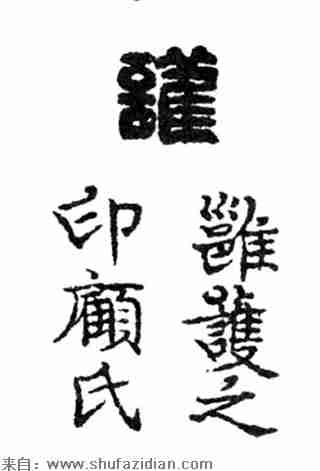 護
雝護之
印顧氏
来自：www.shufazidian.com